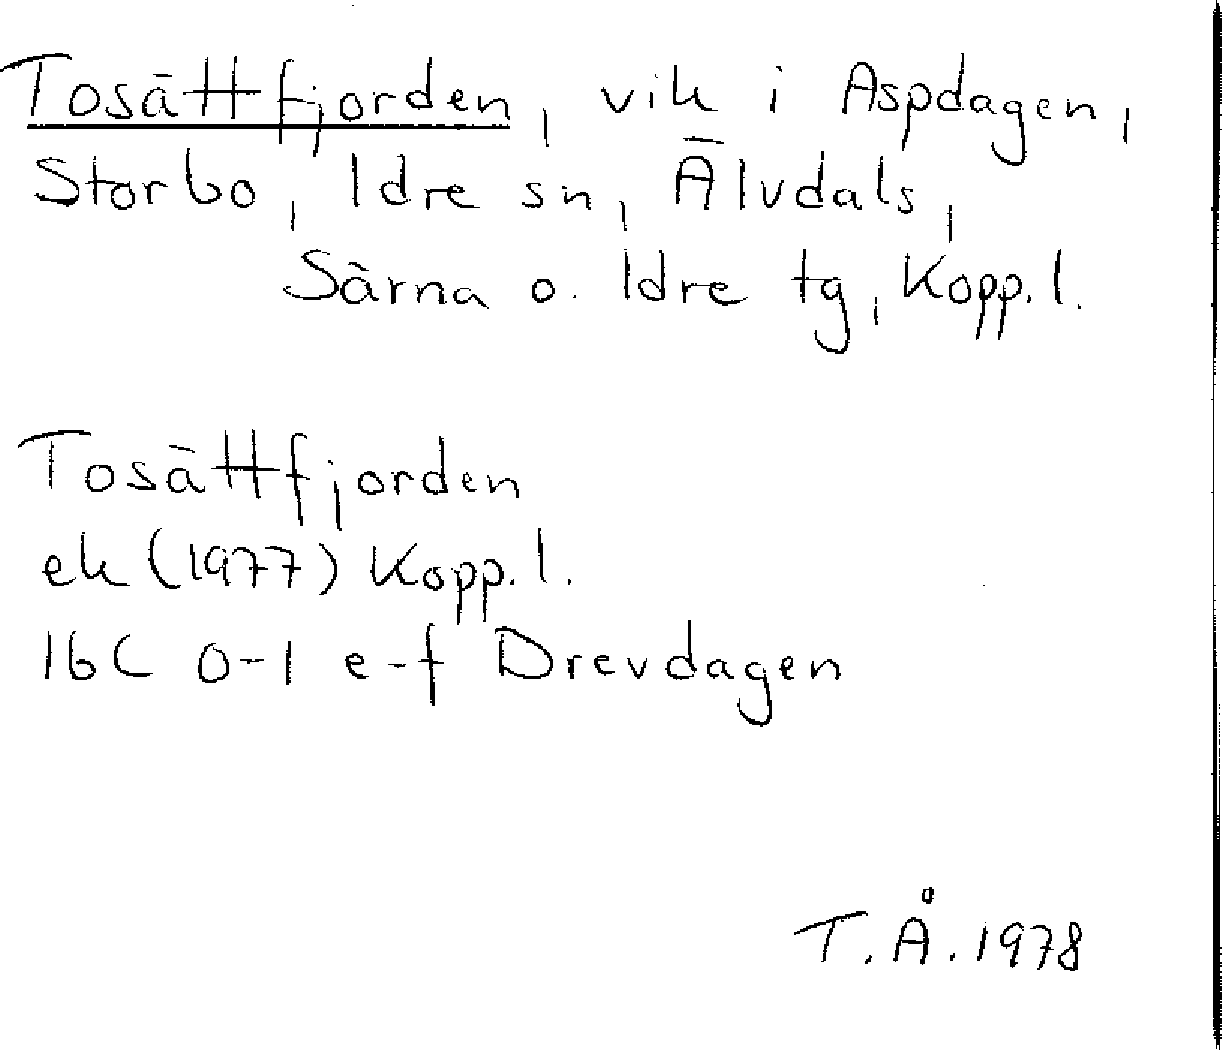 Tosättfjorden, vik i Aspdagen,
Storbo, Idre sn, Älvdals,
Särna o. Idre tg, Kopp. l.
Tosättfjorden
ek (1977) Kopp. l.
16C 0-1 e-f Drevdagen
T. Å. 1978